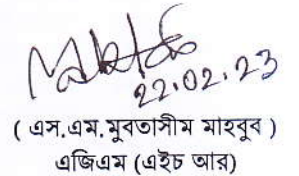 22.02.23
( এস.এম.মুবতাসীম মাহবুব )
এজিএম (এইচ আর)